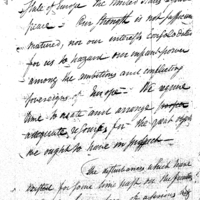 State of Europe the United States
peace — Our strength is not sufficiently
matured, nor our interests consolidated
for us to hazard our importance
among the ambitious and conflicting
sovereigns of Europe — We require
time to create and arrange
adequate resources for the great objects
we ought to have in prospect.
The disturbances which have
existed for some time past on the